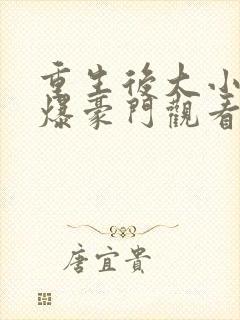 重生後大小
爆豪門觀看
唐宜貴